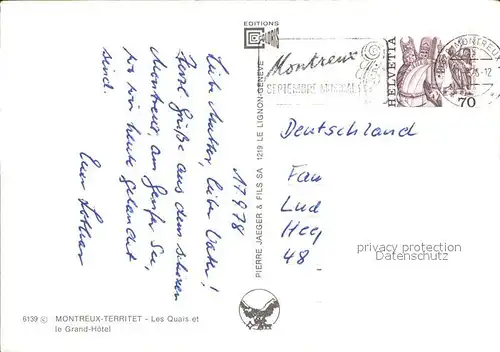 EDITIONS
Montreux
SEPTEMBRE MUSICAL
HELVETIA
70
MONTREUX
Liebe Mutter, lieber Vater!
Herzl. Grüße aus dem schönen
Montreux am Genfer See,
wo wir heute gelandet
sind.
Euer Lothar
1 9 78
PIERRE JAEGER & FILS SA 1219 LE LIGNON-GENEVE
Deutschland
Fam
Lud
Heg
48
privacy protection
Datenschutz
6139 © MONTREUX-TERRITET - Les Quais et
le Grand-Hôtel